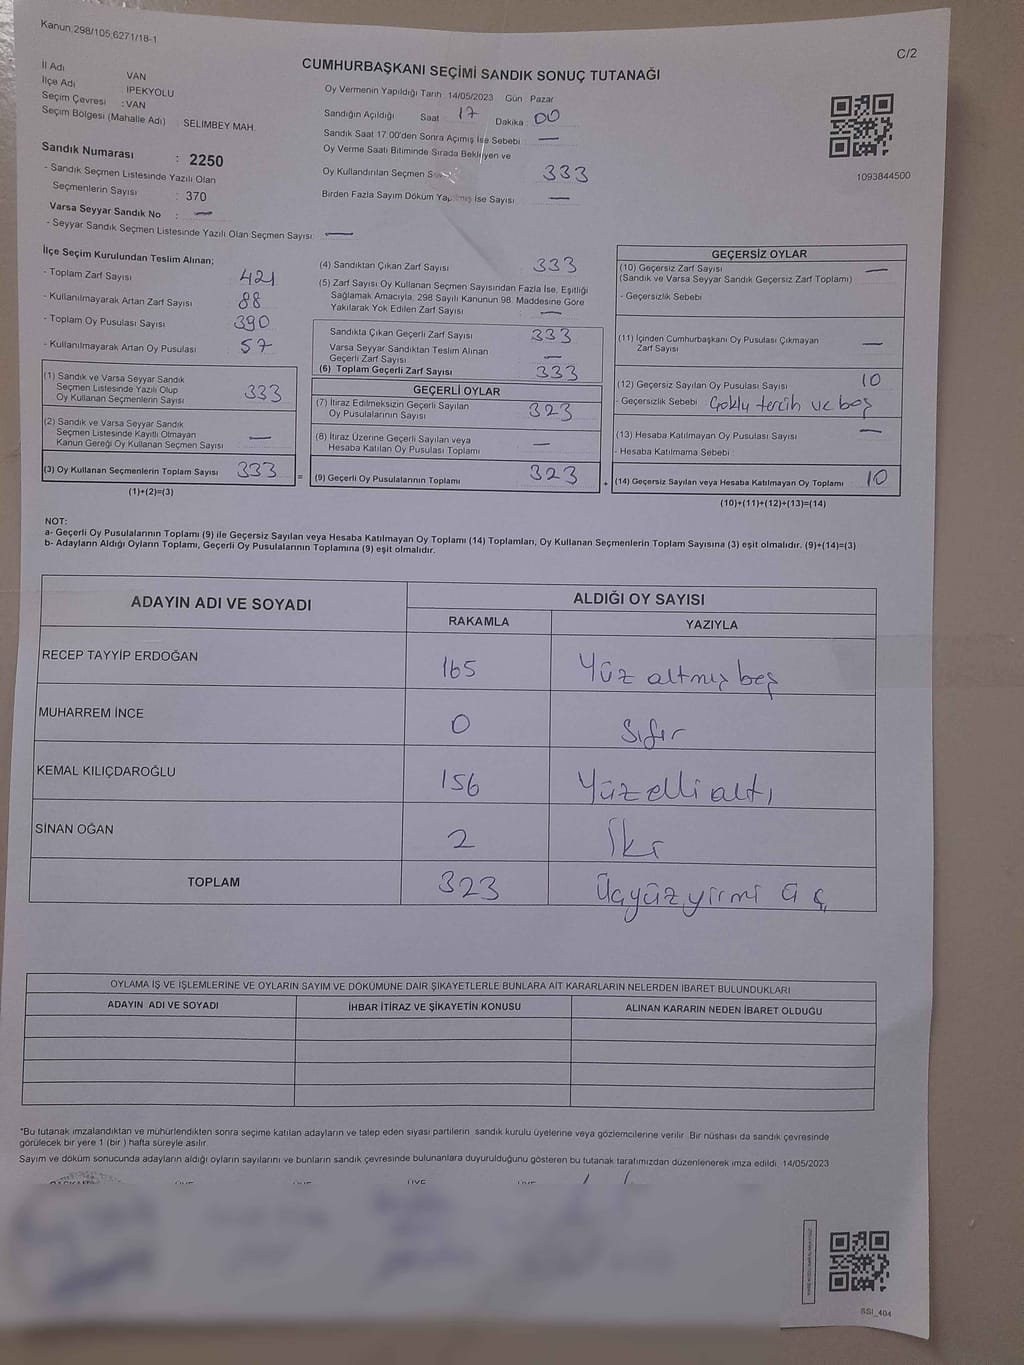 Kanun,298/105,6271/18-1
C/2
CUMHURBAŞKANI SEÇİMİ SANDIK SONUÇ TUTANAĞI
İl Adı VAN
İlçe Adı : İPEKYOLU
Seçim Çevresi : VAN
Seçim Bölgesi (Mahalle Adı) : SELIMBEY MAH.
Sandık Numarası : 2250
- Sandık Seçmen Listesinde Yazılı Olan
Seçmenlerin Sayısı : 370
Varsa Seyyar Sandık No : —
- Seyyar Sandık Seçmen Listesinde Yazılı Olan Seçmen Sayısı: —
Oy Vermenin Yapıldığı Tarih 14/05/2023 Gün Pazar
Sandığın Açıldığı Saat 17 Dakika 00
Sandık Saat 17:00'den Sonra Açılmış İse Sebebi —
Oy Verme Saati Bitiminde Sırada Bekleyen ve
Oy Kullandırılan Seçmen 333
Birden Fazla Sayım Döküm Yapılmış İse Sayısı —
1093844500
İlçe Seçim Kurulundan Teslim Alınan;
- Toplam Zarf Sayısı 421
- Kullanılmayarak Artan Zarf Sayısı 88
- Toplam Oy Pusulası Sayısı 390
- Kullanılmayarak Artan Oy Pusulası 57
(1) Sandık ve Varsa Seyyar Sandık
Seçmen Listesinde Yazılı Olup
Oy Kullanan Seçmenlerin Sayısı 333
(2) Sandık ve Varsa Seyyar Sandık
Seçmen Listesinde Kayıtlı Olmayan
Kanun Gereği Oy Kullanan Seçmen Sayısı —
(3) Oy Kullanan Seçmenlerin Toplam Sayısı 333 =
(1)+(2)=(3)
(4) Sandıktan Çıkan Zarf Sayısı 333
(5) Zarf Sayısı Oy Kullanan Seçmen Sayısından Fazla İse, Eşitliği
Sağlamak Amacıyla, 298 Sayılı Kanunun 98. Maddesine Göre
Yakılarak Yok Edilen Zarf Sayısı —
Sandıkta Çıkan Geçerli Zarf Sayısı 333
Varsa Seyyar Sandıktan Teslim Alınan
Geçerli Zarf Sayısı —
(6) Toplam Geçerli Zarf Sayısı 333
GEÇERLİ OYLAR
(7) İtiraz Edilmeksizin Geçerli Sayılan
Oy Pusulalarının Sayısı 323
(8) İtiraz Üzerine Geçerli Sayılan veya
Hesaba Katılan Oy Pusulası Toplamı —
(9) Geçerli Oy Pusulalarının Toplamı 323 +
GEÇERSİZ OYLAR
(10) Geçersiz Zarf Sayısı —
(Sandık ve Varsa Seyyar Sandık Geçersiz Zarf Toplamı)
- Geçersizlik Sebebi
(11) İçinden Cumhurbaşkanı Oy Pusulası Çıkmayan
Zarf Sayısı —
(12) Geçersiz Sayılan Oy Pusulası Sayısı 10
- Geçersizlik Sebebi Çoklu tercih ve boş
(13) Hesaba Katılmayan Oy Pusulası Sayısı —
- Hesaba Katılmama Sebebi
(14) Geçersiz Sayılan veya Hesaba Katılmayan Oy Toplamı 10
(10)+(11)+(12)+(13)=(14)
NOT:
a- Geçerli Oy Pusulalarının Toplamı (9) ile Geçersiz Sayılan veya Hesaba Katılmayan Oy Toplamı (14) Toplamları, Oy Kullanan Seçmenlerin Toplam Sayısına (3) eşit olmalıdır. (9)+(14)=(3)
b- Adayların Aldığı Oyların Toplamı, Geçerli Oy Pusulalarının Toplamına (9) eşit olmalıdır.
ADAYIN ADI VE SOYADI ALDIĞI OY SAYISI
RAKAMLA YAZIYLA
RECEP TAYYİP ERDOĞAN 165 Yüz altmış beş
MUHARREM İNCE 0 Sıfır
KEMAL KILIÇDAROĞLU 156 Yüz elli altı
SİNAN OĞAN 2 İki
TOPLAM 323 Üçyüz yirmi üç
OYLAMA İŞ VE İŞLEMLERİNE VE OYLARIN SAYIM VE DÖKÜMÜNE DAİR ŞİKAYETLERLE BUNLARA AİT KARARLARIN NELERDEN İBARET BULUNDUKLARI
ADAYIN ADI VE SOYADI İHBAR İTİRAZ VE ŞİKAYETİN KONUSU ALINAN KARARIN NEDEN İBARET OLDUĞU
*Bu tutanak imzalandıktan ve mühürlendikten sonra seçime katılan adayların ve talep eden siyasi partilerin sandık kurulu üyelerine veya gözlemcilerine verilir. Bir nüshası da sandık çevresinde
görülecek bir yere 1 (bir) hafta süreyle asılır.
Sayım ve döküm sonucunda adayların aldığı oyların sayılarını ve bunların sandık çevresinde bulunanlara duyurulduğunu gösteren bu tutanak tarafımızdan düzenlenerek imza edildi. 14/05/2023
SSI_404